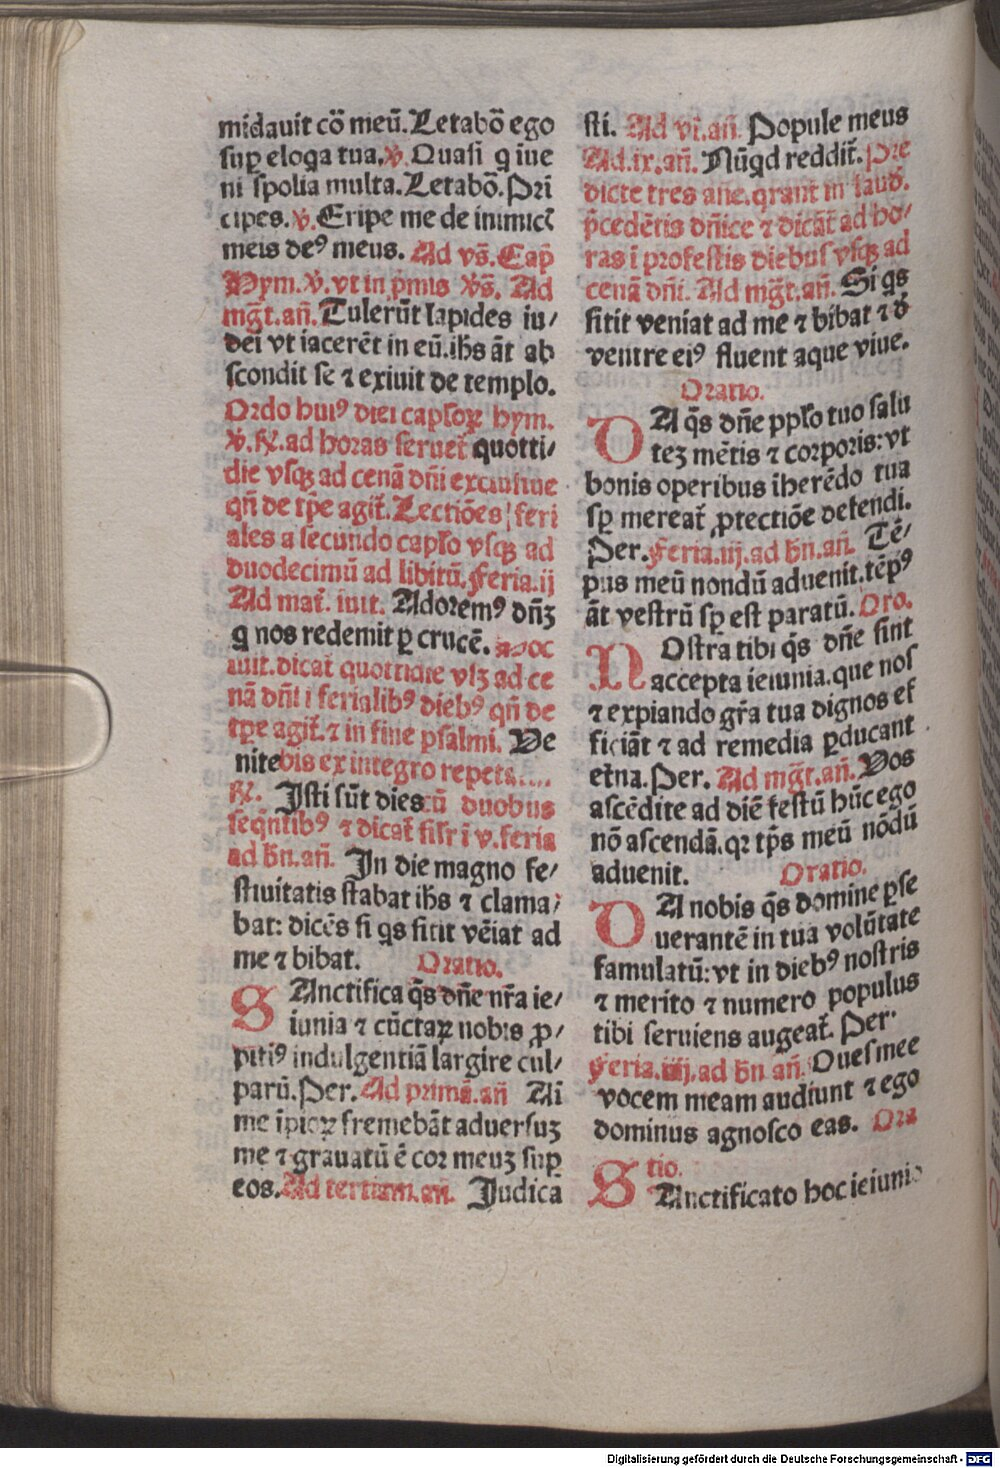 midauit cō meū. Letabō ego
suꝑ eloqa tua. ℣. Quasi q iue
ni spolia multa. Letabō. Prī
cipes. ℣. Eripe me de inimict
meis deꝰ meus. Ad vs̄. Cap̄
Hym. ℣. vt in p̄mis vs̄. Ad
mg̃t. an̄. Tulerūt lapides iu/
dei vt iacerēt in eū. ihs āt ab
scondit se ⁊ exiuit de templo.
Ordo huiꝰ diei capłoꝝ hym.
℣. ℟. ad horas seruet̄ quotti/
die vsqꝫ ad cenā dn̄i exclusiue
qn̄ de tp̄e agit̄. Lectiōes feri
ales a secundo capło vsqꝫ ad
duodecimū ad libitū. Feria. ij
Ad mat̄. iuit. Adoremꝰ dn̄ꝫ
q nos redemit ꝑ crucē. Hoc
iuit. dicat̄ quottidie vsqꝫ ad ce
nā dn̄i ī ferialibꝰ diebꝰ qn̄ de
tp̄e agit̄. ⁊ in fine psalmi. Ve
nite bis ex integro repeta....
℟. Isti sūt dies cū duobus
seq̄ntibꝰ ⁊ dicat̄ silr ī v. feria
ad bn̄. an̄. In die magno fe/
stiuitatis stabat ihs ⁊ clama/
bat: dicēs si qs sitit vēiat ad
me ⁊ bibat. Oratio.
SAnctifica q̄s dn̄e nr̄a ie/
iunia ⁊ cūctaꝝ nobis ꝓ/
pitiꝰ indulgentiā largire cul/
parū. Per. Ad primā. an̄ Ai
me īpioꝝ fremebāt aduersuꝫ
me ⁊ grauatū ē cor meuꝫ suꝑ
eos. Ad tertiam. an̄. Iudica
sti. Ad vi. an̄. Popule meus
Ad. ix. an̄. Nūqd reddit̄. Pre
dicte tres ane. q̄rant̄ in laud̄.
p̄cedētis dn̄ice ⁊ dicāt̄ ad ho/
ras ī profestis diebus vsqꝫ ad
cenā dn̄i. Ad mg̃t. an̄. Si qs
sitit veniat ad me ⁊ bibat ⁊ d̄
ventre eiꝰ fluent aque viue.
Oratio.
DA q̄s dn̄e ppło tuo salu
teꝫ mētis ⁊ corporis: vt
bonis operibus īherēdo tua
sꝑ mereat̄ ꝓtectiōe defendi.
Per. Feria. iij. ad bn̄. an̄. Tē/
pus meū nondū aduenit. tēpꝰ
āt vestrū sꝑ est paratū. Oro.
NOstra tibi q̄s dn̄e sint
accepta ieiunia. que nos
⁊ expiando gr̄a tua dignos ef
ficiāt ⁊ ad remedia ꝑducant
et̄na. Per. Ad mg̃t. an̄. Vos
ascēdite ad diē festū hūc ego
nō ascendā. qꝛ tp̄s meū nōdū
aduenit. Oratio.
DA nobis q̄s domine ꝑse
uerantē in tua volūtate
famulatū: vt in diebꝰ nostris
⁊ merito ⁊ numero populus
tibi seruiens augeat̄. Per.
Feria. iiij. ad bn̄ an̄. Oues mee
vocem meam audiunt ⁊ ego
dominus agnosco eas. Ora
tio.
SAnctificato hoc ieiunio
Digitalisierung gefördert durch die Deutsche Forschungsgemeinschaft - DFG